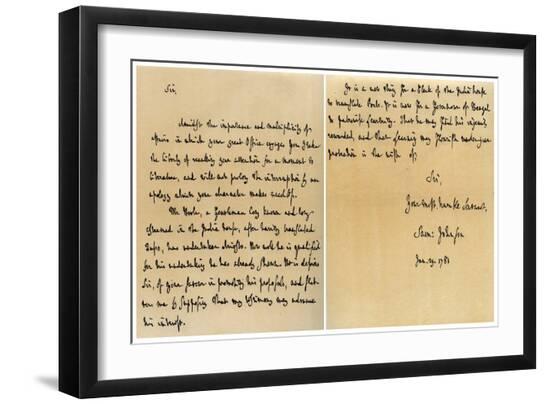 Sir,
Amidst the importance and multiplicity of
affairs in which your great Office engages you I take
the liberty of recalling your attention for a moment to
literature, and will not prolong the interruption by an
apology which your character makes needless.
Mr Hoole, a Gentleman long known and long
esteemed in the India house, after having translated
Tasso, has undertaken Ariosto. How well he is qualified
for his undertaking he has already shown. He is desirous
Sir, of your favour in promoting his proposals, and flatters
me by supposing that my testimony may advance
his interest.
It is a new thing for a Clerk of the India house
to translate Poets. It is new for a Governour of Bengal
to patronise Learning. That he may find his ingenuity
rewarded, and that Learning may flourish under your
protection is the wish of,
Sir,
Your most humble Servant,
Sam: Johnson
Jan. 29. 1781